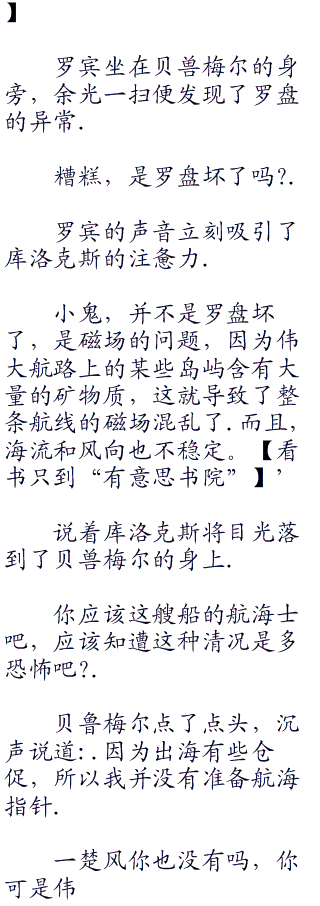 】
罗宾坐在贝兽梅尔的身
旁，余光一扫便发现了罗盘
的异常.
糟糕，是罗盘坏了吗?.
罗宾的声音立刻吸引了
库洛克斯的注惫力.
小鬼，并不是罗盘坏
了，是磁场的问题，因为伟
大航路上的某些岛屿含有大
量的矿物质，这就导致了整
条航线的磁场混乱了.而且，
海流和风向也不稳定。【看
书只到“有意思书院”】’
说着库洛克斯将目光落
到了贝兽梅尔的身上.
你应该这艘船的航海士
吧，应该知遭这种清况是多
恐怖吧?.
贝鲁梅尔点了点头，沉
声说道:.因为出海有些仓
促，所以我并没有准备航海
指针.
一楚风你也没有吗，你
可是伟